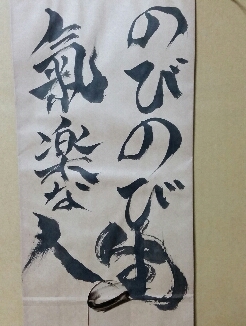 のびのび生
氣楽な人